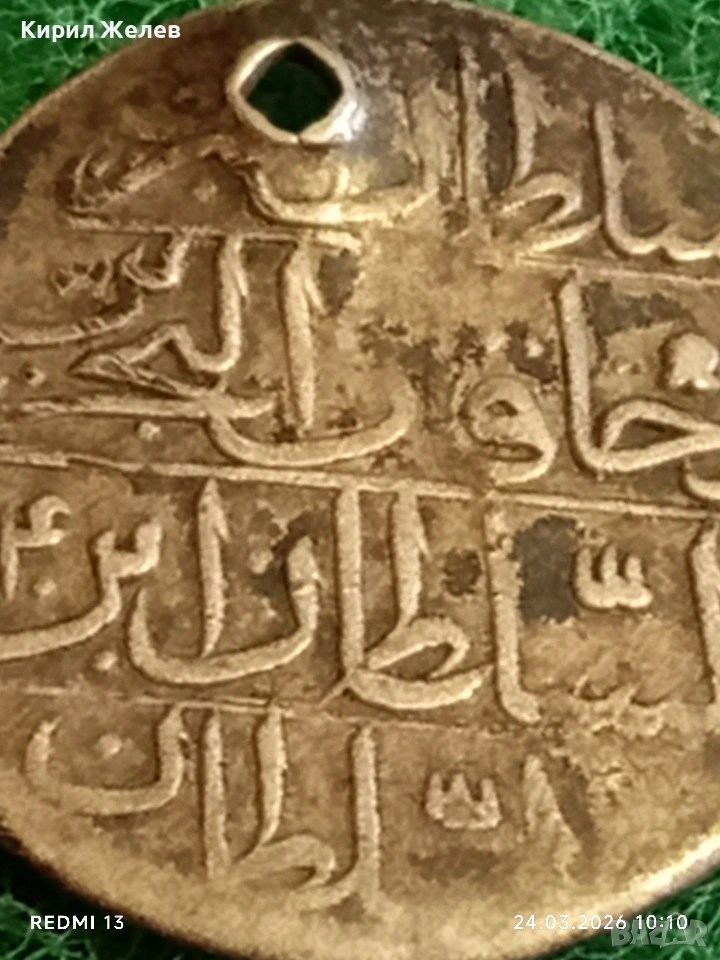 Кирил Желев
سلطان البرين
وخاقان البحرين
السلطان ابن
السلطان
REDMI 13
24.03.2026 10:10
BAZAR